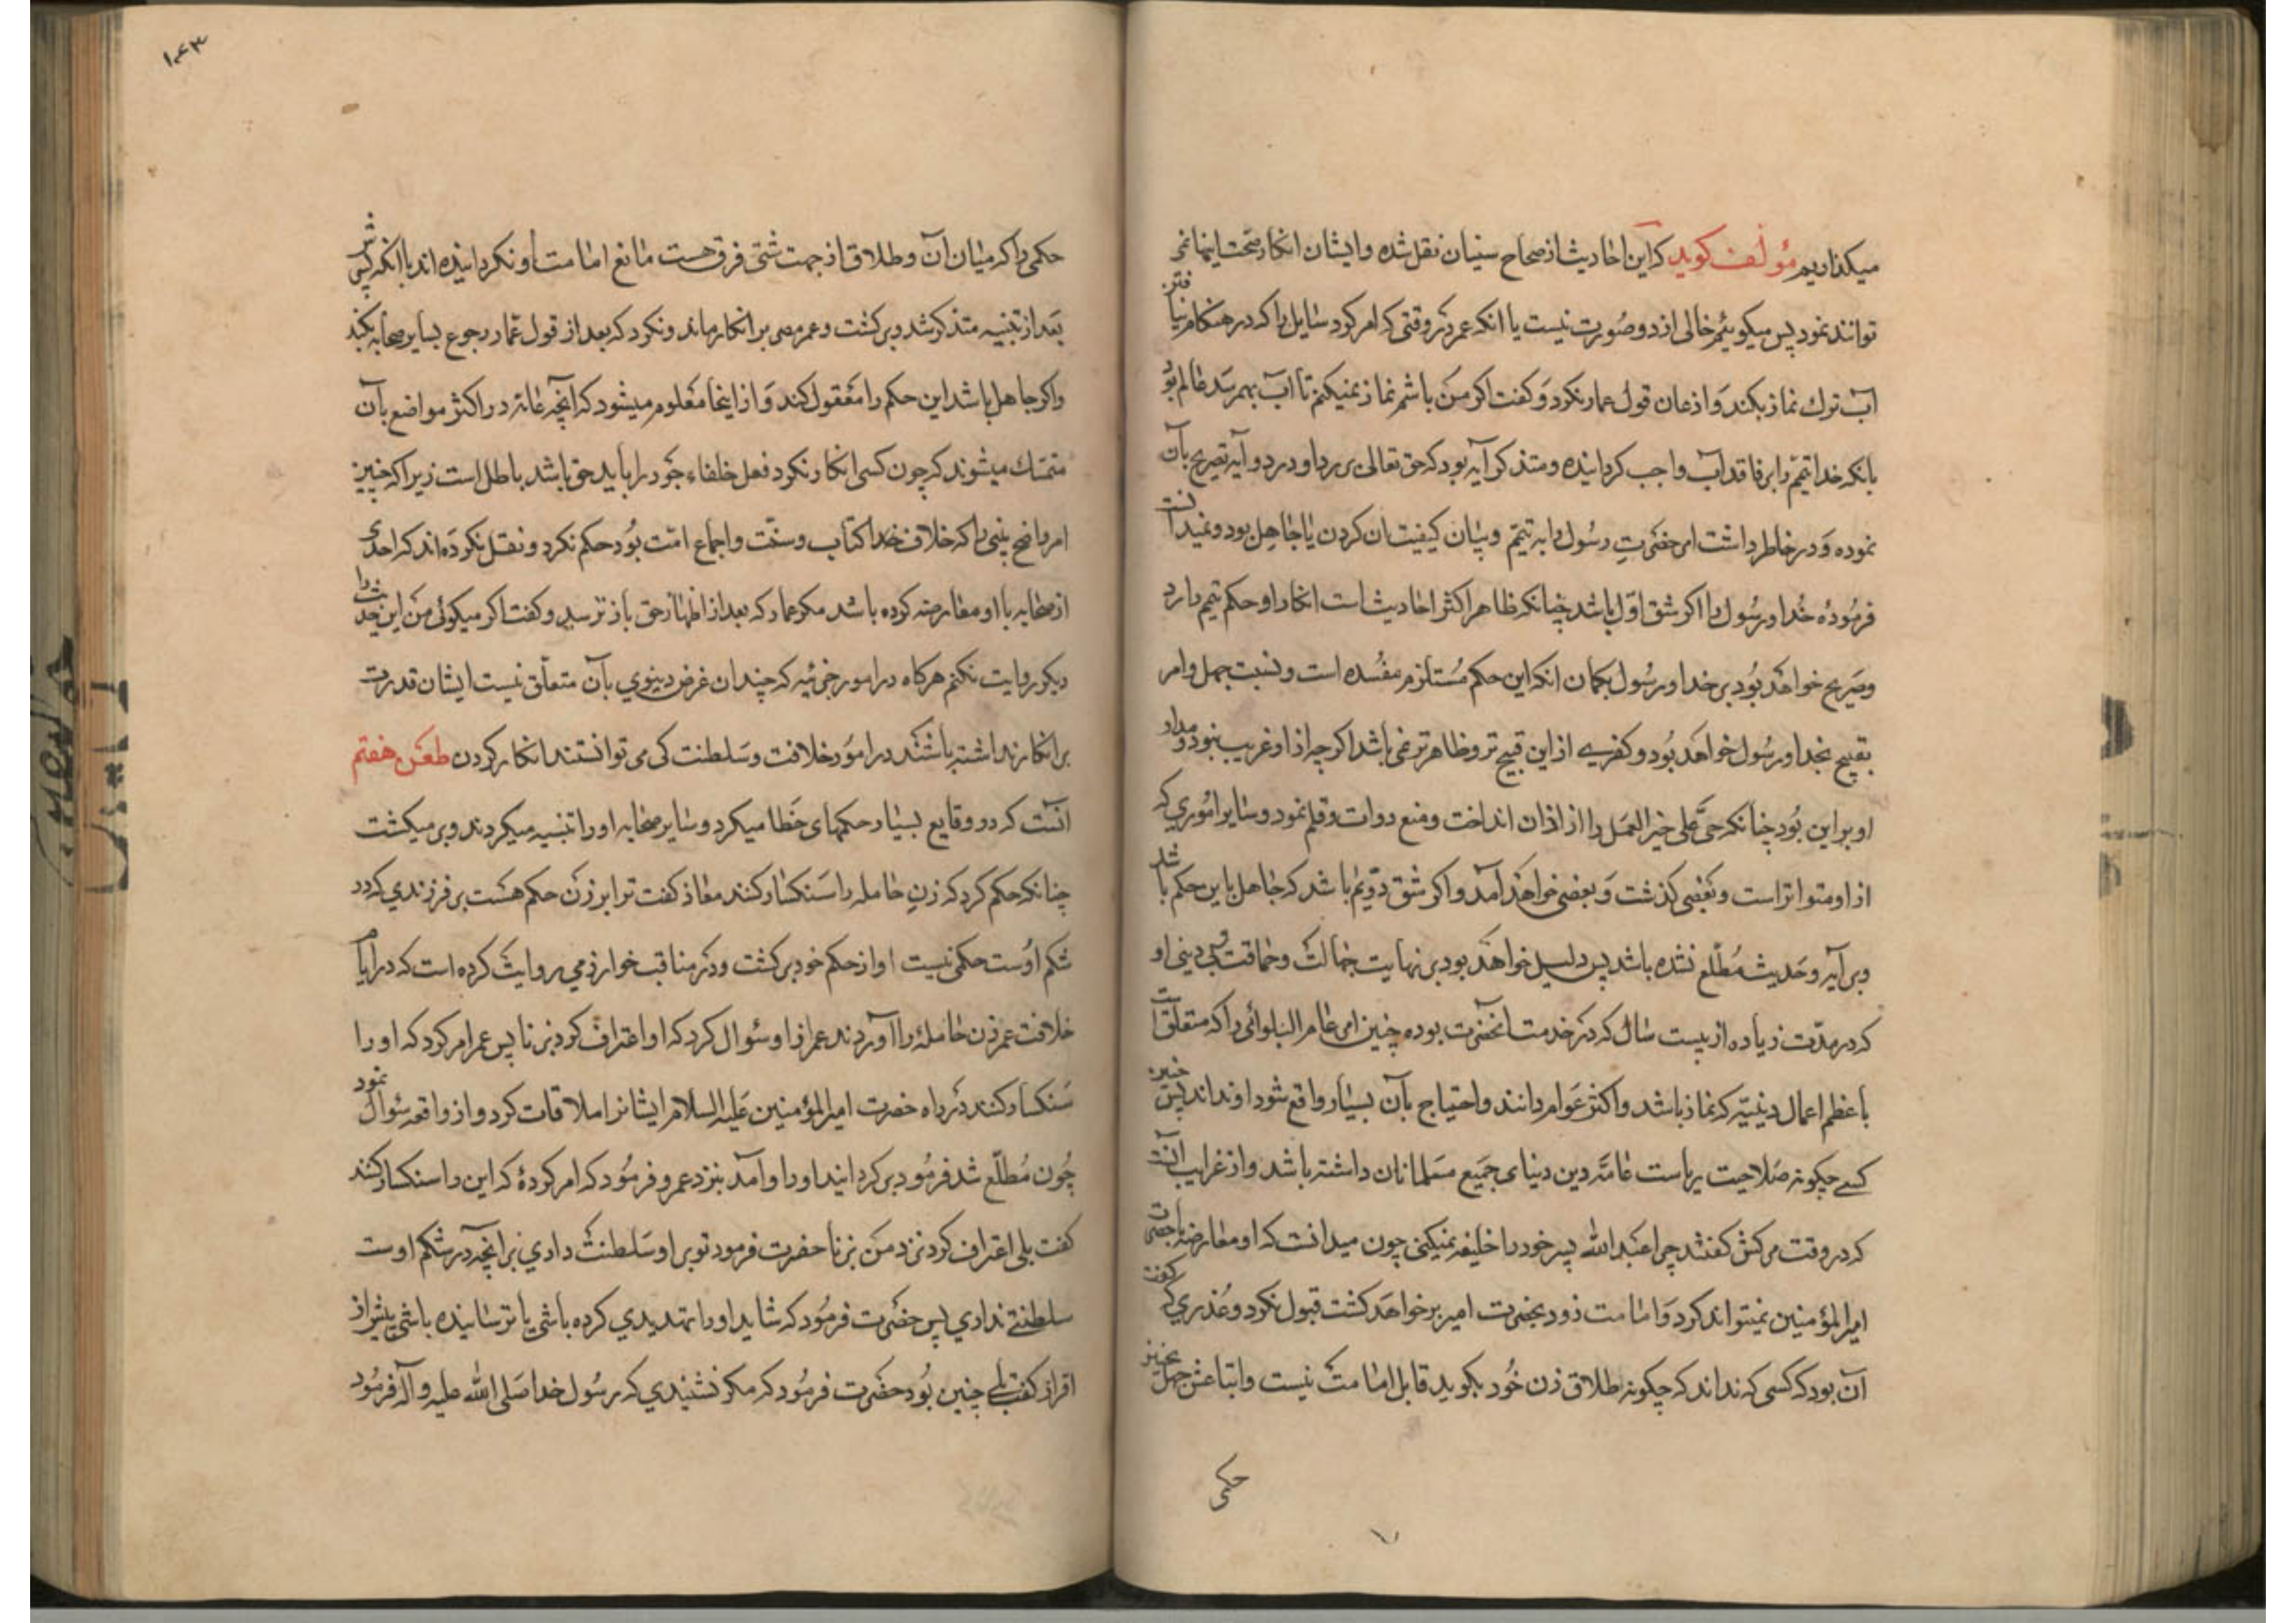 میکذاریم مؤلف کوید که این احادیث از صحاح سنیان نقل شده و ایشان انکار صحت اینها نمی
توانند نمود پس میکوئیم خالی از دو صورت نیست یا انکه عمر در وقتی که امر کرد سایل را که در هنکام نیافتن
آب ترک نماز بکند و اذعان قول عمار نکرد و کفت اکر من باشم نماز نمیکنم تا آب بهمرسد عالم بود
بانکه خدا تیمم را بر فاقد آب واجب کردانیده و متذکر آیه بود که حق تعالی در دو آیه تصریح بآن
نموده و در خاطر داشت امر حضرت رسول را به تیمم و بیان کیفیت ان کردن یا جاهل بود و نمیدانست
فرمودهٔ خدا و رسول را اکر شق اول باشد چنانکه ظاهر اکثر احادیث است انکار او حکم تیمم را رد
و صریح خواهد بود بر خدا و رسول بکمان انکه این حکم مستلزم مفسده است و نسبت جهل و امر
بقبیح بخدا و رسول خواهد بود و کفری از این قبیح تر و ظاهر تر نمی باشد اکرچه از او غریب نبود و مدار
او بر این بود چنانکه حی علی خیر العمل را از اذان انداخت و منع دوات و قلم نمود و سایر اموری که
از او متواتر است و بعضی کذشت و بعضی خواهد آمد و اکر شق دویم باشد که جاهل باین حکم باشد
و بر آیه و حدیث مطلع نشده باشد پس دلیل خواهد بود بر نهایت جهالت و حماقت و بی دینی او
که در مدت زیاده از بیست سال که در خدمت انحضرت بوده چنین امر عام البلوائی را که متعلق است
باعظم اعمال دینیه که نماز باشد و اکثر عوام دانند و احتیاج بآن بسیار واقع شود او نداند پس چنین
کسی چکونه صلاحیت ریاست عامه دین دنیای جمیع مسلمانان داشته باشد و از غرایب آنست
که در وقت مرکش کفتند چرا عبد الله پسر خود را خلیفه نمیکنی چون میدانست که او معارضه با حضرت
امیر المؤمنین نمیتواند کرد و امامت زود بحضرت امیر بر خواهد کشت قبول نکرد و عذری که کفت
آن بود که کسی که نداند که چکونه طلاق زن خود بکوید قابل امامت نیست و اتباعش جهل بچنین
حکمی
۱۰۴۳
حکمی را که میان آن و طلاق از جهت شتی فرق هست مانع امامت او نکردانیده اند با انکه پسرش
بعد از تنبیه متذکر شد و بر کشت و عمر مصر بر انکار ماند و نکرد که بعد از قول عمار رجوع بسایر صحابه بکند
و اکر جاهل باشد این حکم را معقول کند و از اینجا معلوم میشود که آنچه عامه در اکثر مواضع بآن
متمسک میشوند که چون کسی انکار نکرد فعل خلفاء جور را باید حق باشد باطل است زیرا که چنین
امر واضح بینی را که خلاف خدا کتاب و سنت و اجماع امت بود حکم نکرد و نقل نکرده اند که احدی
از صحابه با او معارضه کرده باشد مکر عمار که بعد از اظهار حق باز ترسید و کفت اکر میکوئی من این حدیث را
دیکر روایت نکنم هرکاه در امور جزئیه که چندان غرض دنیوی بآن متعلق نیست ایشان قدرت
بر انکار نداشته باشند در امور خلافت و سلطنت کی می توانستند انکار کردن طعن هفتم
آنست که در وقایع بسیار حکمهای خطا میکرد و سایر صحابه او را تنبیه میکردند و بر میکشت
چنانکه حکم کرد که زن حامله را سنکسار کنند معاذ کفت ترا بر زن حکم هست بر فرزندی که در
شکم اوست حکمی نیست او از حکم خود بر کشت و در مناقب خوارزمی روایت کرده است که در ایام
خلافت عمر زن حامله را آوردند عمر از او سئوال کرد که او اعتراف کرد بزنا پس عمر امر کرد که او را
سنکسار کنند در راه حضرت امیر المؤمنین علیه السلام ایشانرا ملاقات کرد و از واقعه سئوال نمود
چون مطلع شد فرمود بر کردانید او را و آمد بنزد عمر و فرمود که امر کردهٔ که این را سنکسار کنند
کفت بلی اعتراف کرد نزد من بزنا حضرت فرمود تو بر او سلطنت داری بر آنچه در شکم اوست
سلطنتی نداری پس حضرت فرمود که شاید او را تهدیدی کرده باشی یا ترسانیده باشی پیش از
اقرار کفت بلی چنین بود حضرت فرمود که مکر نشنیدی که رسول خدا صلی الله علیه و آله فرمود